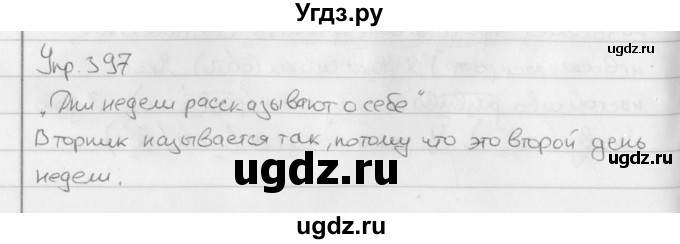 Угдз.ру
ugdz.ru
Упр. 397
ugdz.ru
„Дни недели рассказывают о себе“
Вторник называется так, потому что это второй день
ugdz.ru
недели.
ugdz.ru
ugdz.ru